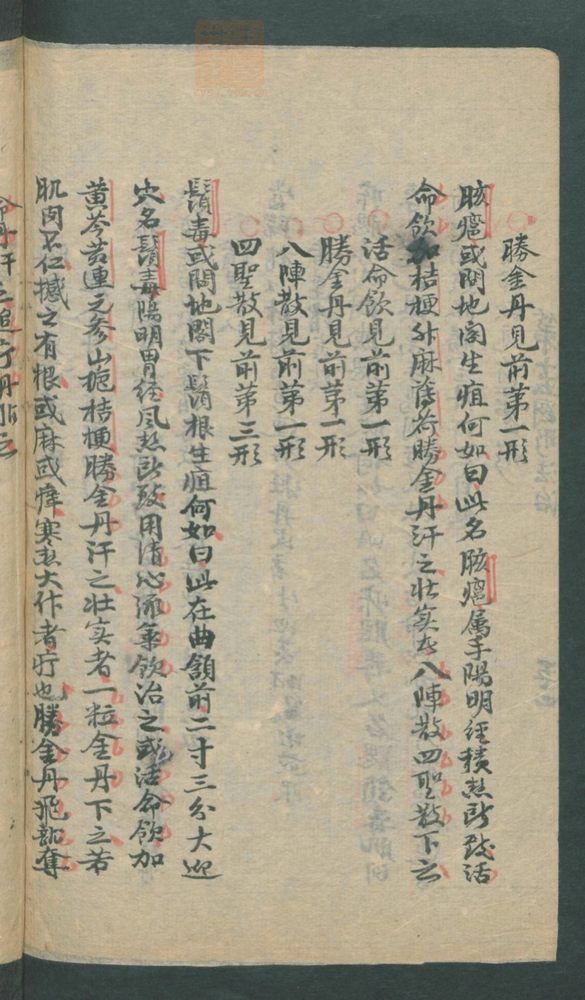 勝金丹見前第一形
䏰癰或問地閣生疽何如曰此名䏰癰属手陽明経積热所致活
命飲加桔梗升麻薄荷勝金丹汗之壮实者八陣散四聖散下之
活命飲見前第一形
勝金丹見前第一形
八陣散見前第一形
四聖散見前第三形
鬚毒或問地閣下鬚根生疽何如曰此在曲頷前一寸三分大迎
穴名鬚毒陽明胃经风热所致用清心流氣飲治之或活命飲加
黄芩黄連元参山梔桔梗勝金丹汗之壮实者一粒金丹下之若
肌肉不仁撼之有根或麻或痒寒热大作者疔也勝金丹飛龍奪
命丹汗之追疗丹